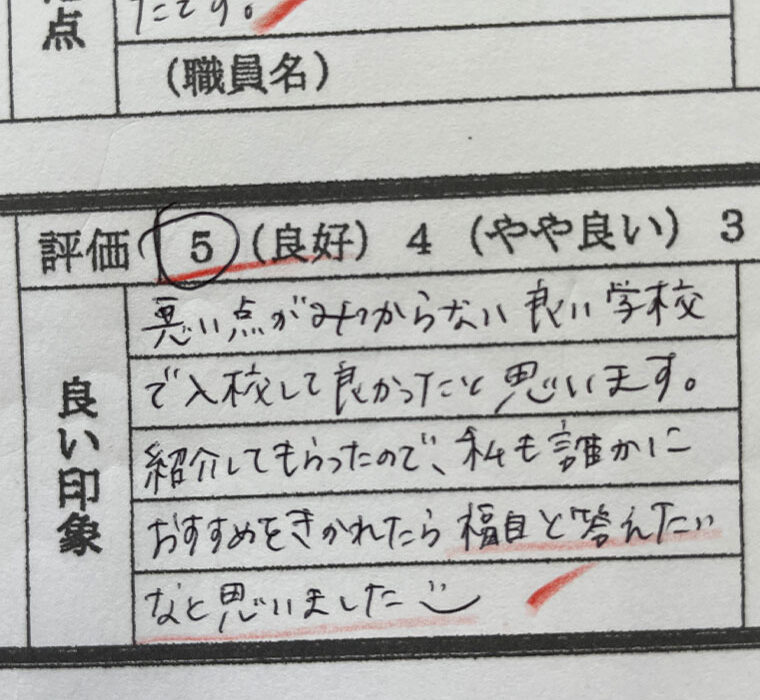 点
たです。
(職員名)
評価 5 (良好) 4 (やや良い) 3
良い印象
悪い点がみつからない良い学校
で入校して良かったなと思います。
紹介してもらったので、私も誰かに
おすすめをきかれたら福自と答えたい
なと思いました